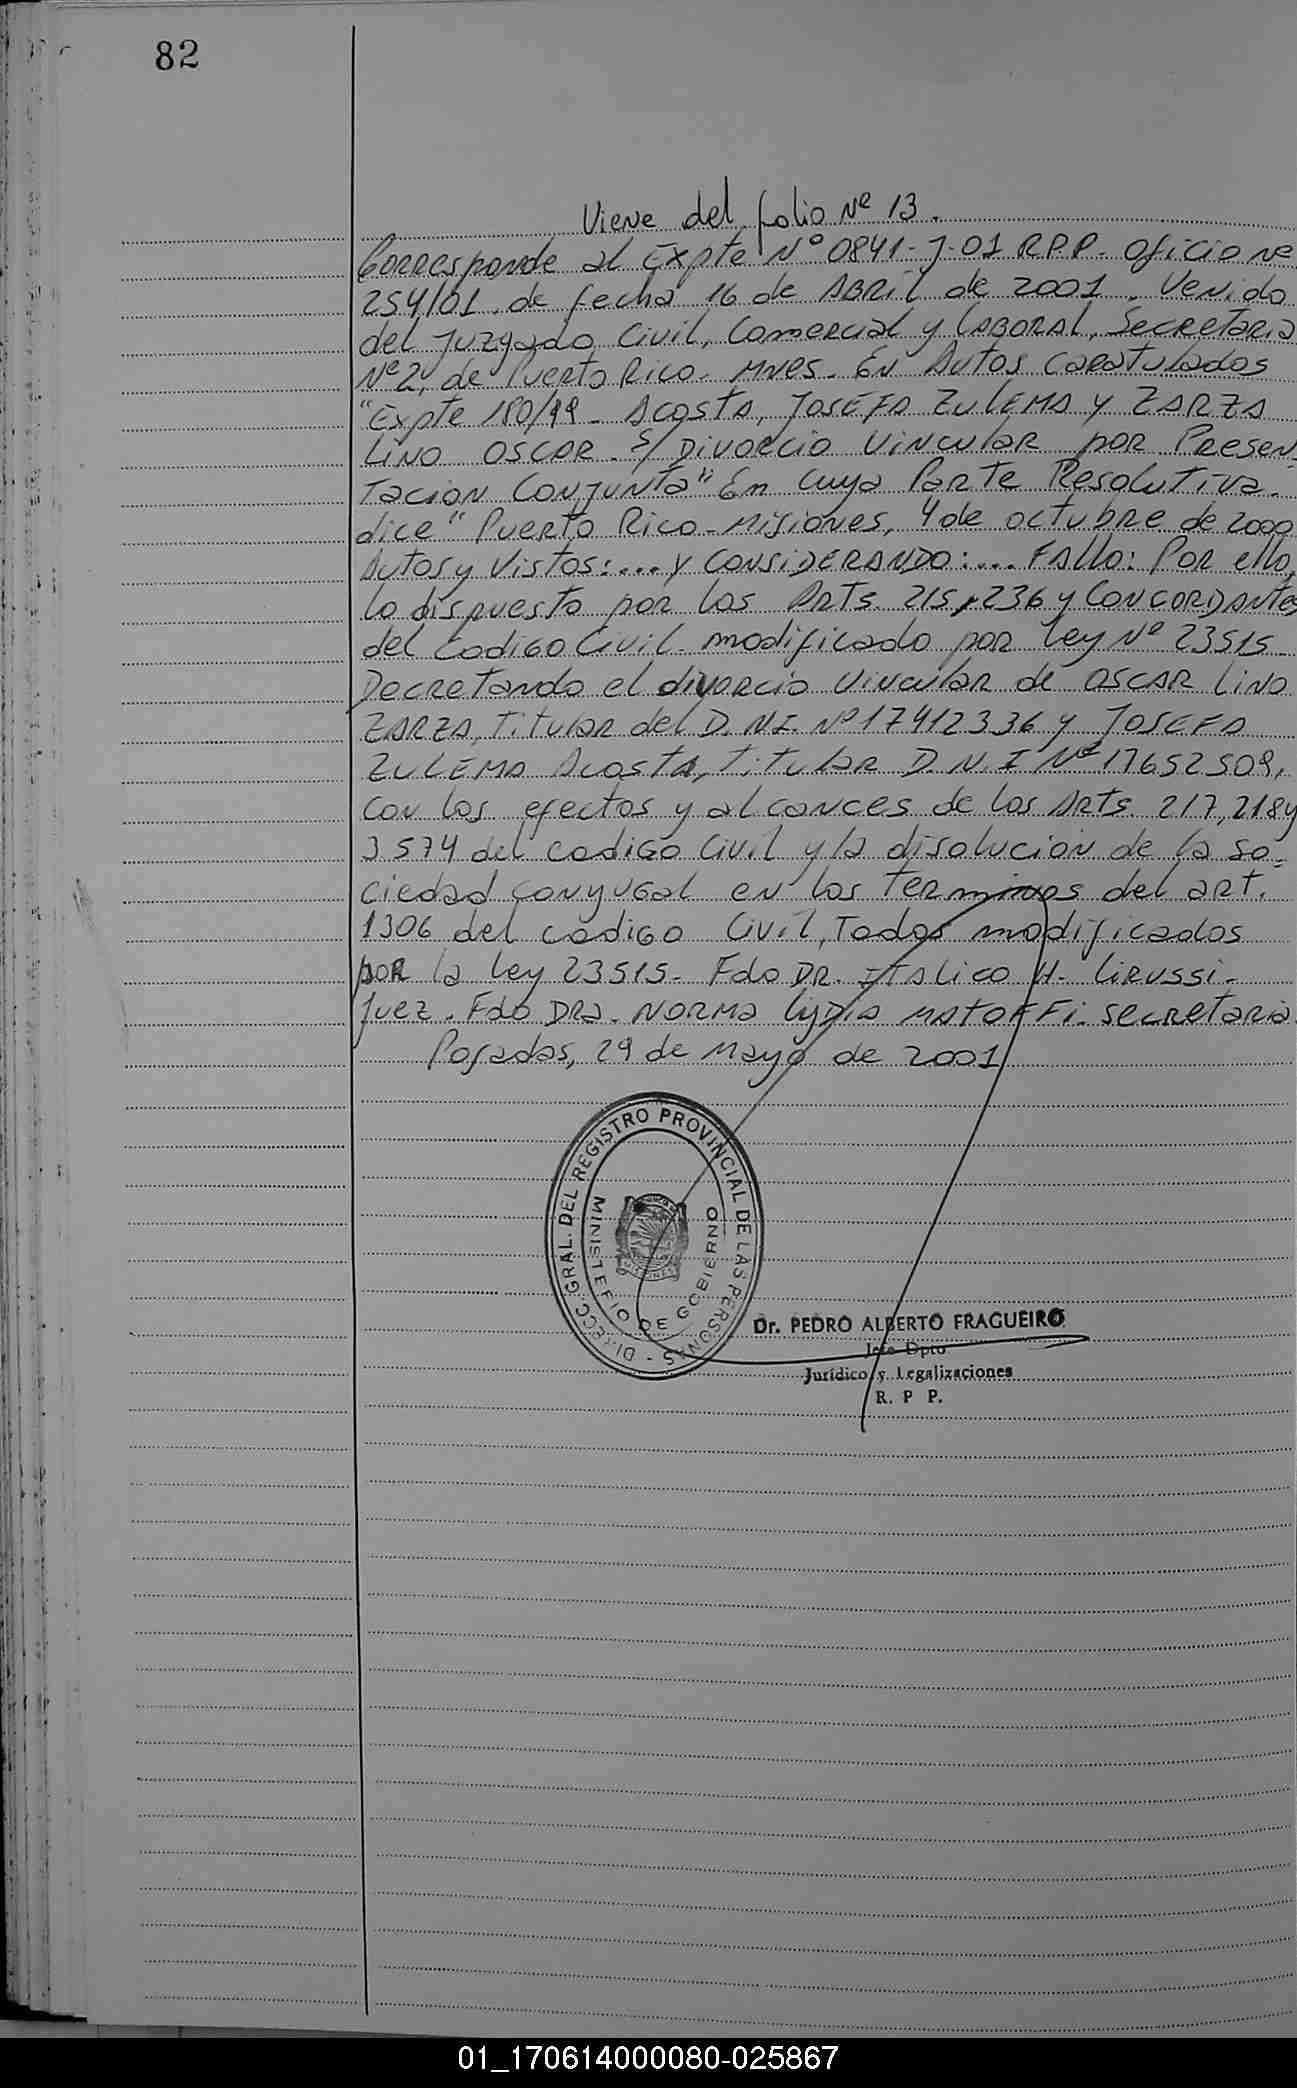 82
Viene del folio Nº 13.
Corresponde al Expte Nº 0841-J-01 R.P.P. Oficio Nº
254/01. de fecha 16 de ABRil de 2001. Venido
del Juzgado Civil, Comercial y LABORAL, Secretaria
Nº2, de Puerto Rico. Mnes. En Autos Caratulados
"Expte 180/99 - Acosta, JOSEFA ZULEMA y ZARZA
LINO OSCAR. S/ Divorcio Vincular por Presen-
Tacion Conjunta" En cuya Parte Resolutiva.
dice" Puerto Rico-Misiones, 4 de octubre de 2000
Autos y Vistos:... y CONSIDERANDO:... FAllo: Por ello,
lo dispuesto por los Arts. 215, 236 y CONCORDANTES
del Codigo Civil. modificado por ley Nº 23515-
Decretando el divorcio vincular de OSCAR LINO
ZARZA, Titular del D.N.I. Nº 17412336 y JOSEFA
ZULEMA Acosta, Titular D.N.I Nº 17652509,
con los efectos y alcances de los Arts. 217, 218 y
3574 del codigo Civil y la disolucion de la so=
ciedad conyugal en los terminos del art.
1306 del codigo Civil, Todos modificados
por la ley 23515- Fdo DR. ITALICO H. CIRUSSI-
Juez. Fdo DRA. NORMA lyDIA MATOFFi. Secretaria.
Posadas, 29 de Mayo de 2001
DIRECC. GRAL. DEL REGISTRO PROVINCIAL DE LAS PERSONAS -
MINISTERIO DE GOBIERNO
MISIONES
Dr. PEDRO ALBERTO FRAGUEIRO
Jefe Dpto
Jurídico y Legalizaciones
R. P P.
01_170614000080-025867